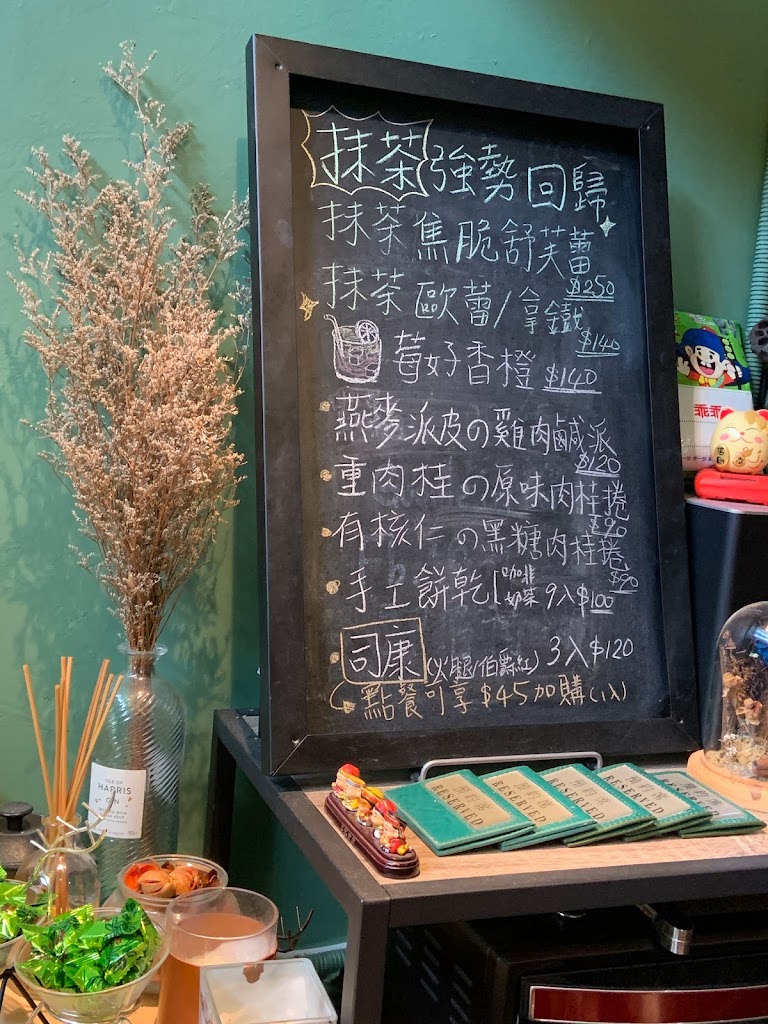 抹茶強勢回歸
抹茶焦脆舒芙蕾
$250
抹茶歐蕾/拿鐵
$140
莓好香橙 $140
燕麥派皮の雞肉鹹派
$120
重肉桂の原味肉桂捲
$90
有核仁の黑糖肉桂捲
$90
手工餅乾[咖啡 9入$100
奶茶
司康(火腿/伯爵紅) 3入$120
點餐可享$45加購(1入)
乖乖
ISLE OF
HARRIS
GIN
RESERVED
RESERVED
RESERVED
RESERVED
RESERVED